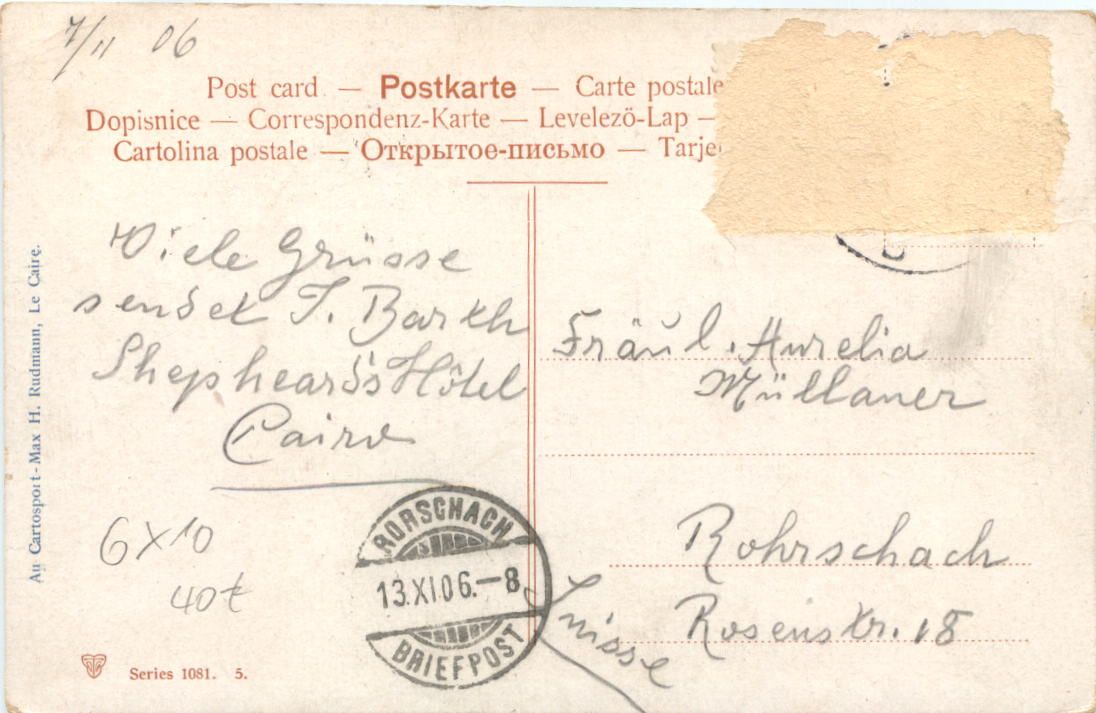 7/11 06
Post card — Postkarte — Carte postale
Dopisnice — Correspondenz-Karte — Levelező-Lap —
Cartolina postale — Открытое-письмо — Tarje
Viele Grüsse
sendet J. Barth
Shepheard's Hôtel
Cairo
Au Cartosport - Max H. Rudmann, Le Caire.
6 x 10
40t
Series 1081. 5.
RORSCHACH
13.XI.06.—8
BRIEFPOST
Fräul. Aurelia
Müllaner
Rohrschach
Rosenstr. 18
Suisse